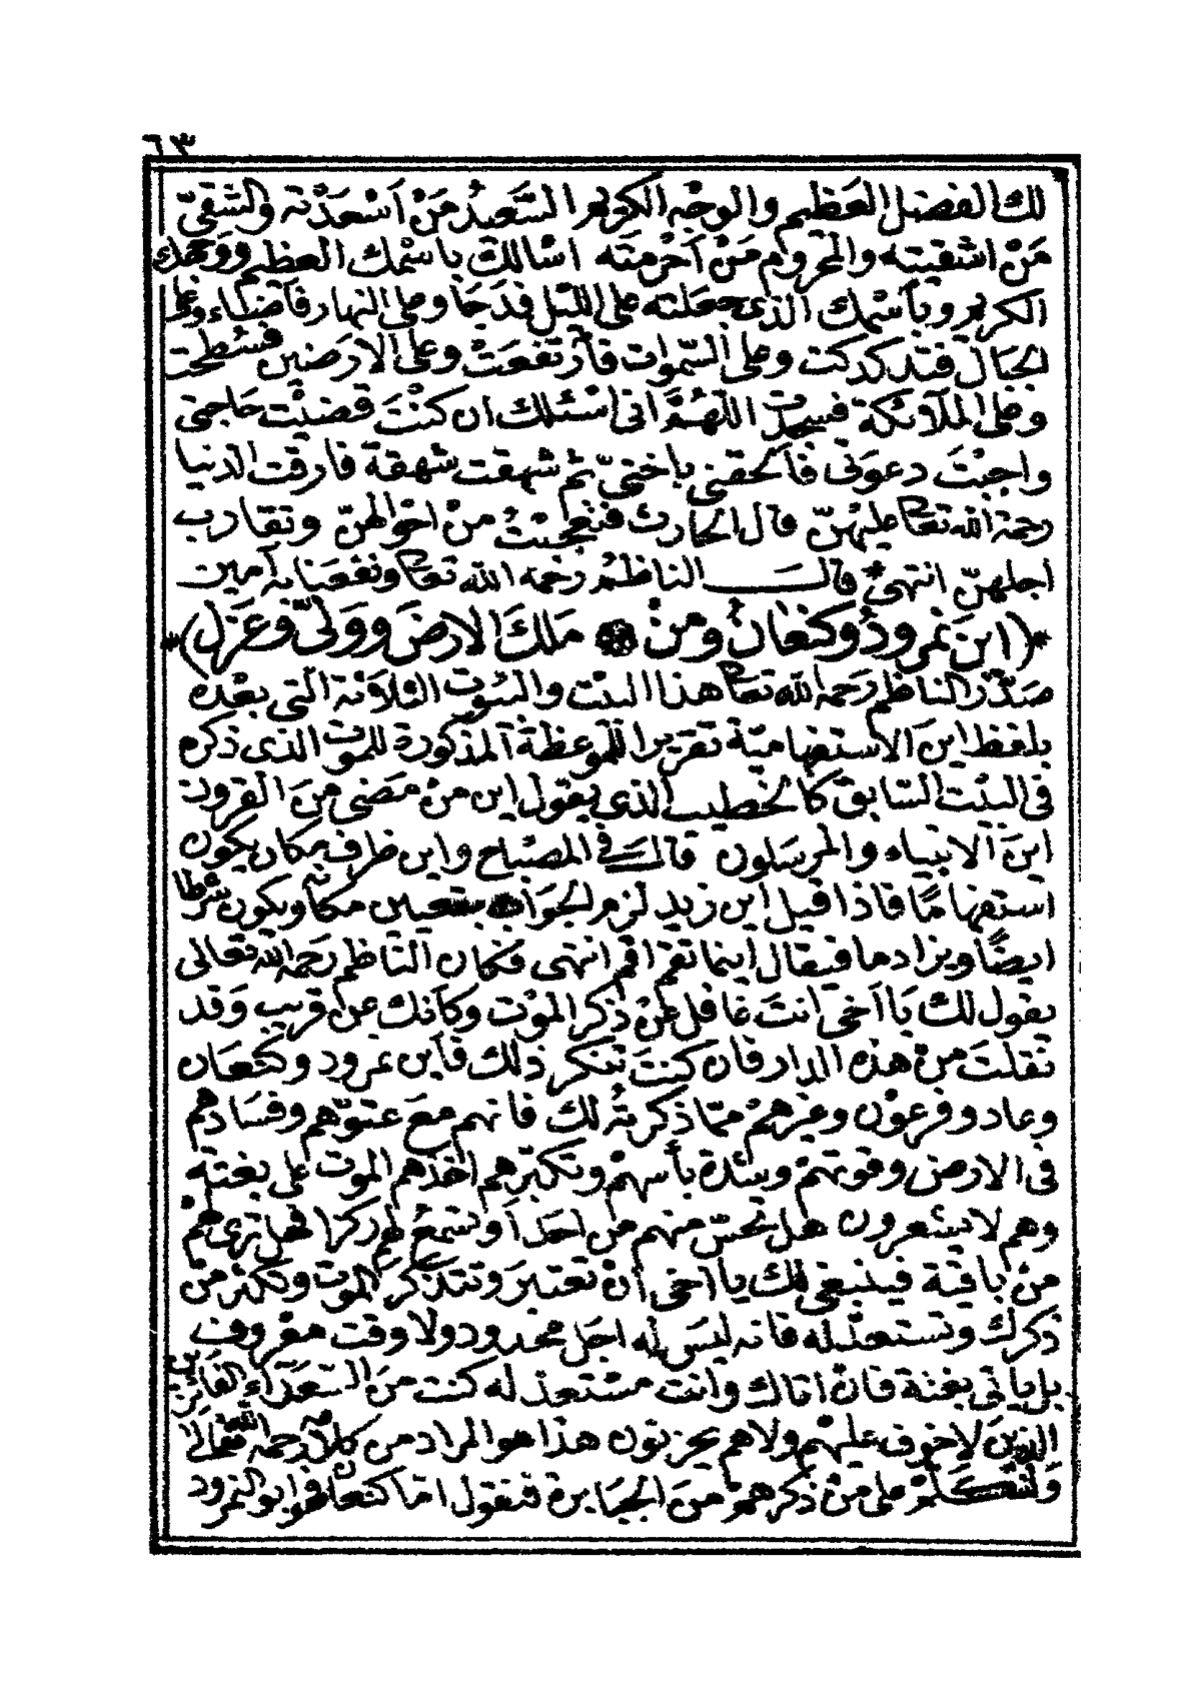 ٦٣
لك الفضل العظيم والوجه الكريم السعيد من أسعدته والشقي
من اشقيته والمحروم من أحرمته اسالك باسمك العظيم ووجهك
الكريم وبأسمك الذى جعلته على الليل فدجا وعلى النهار فأضاء وعلى
الجبال فتدكدكت وعلى السموات فارتفعت وعلى الارضين فسطحت
وعلى الملائكة فسجدت اللهم انى اسئلك ان كنت قضيت حاجتى
واجبت دعوتى فألحقنى باختىّ ثم شهقت شهقة فارقت الدنيا
رحمة الله تعالى عليهنّ قال الحارث فتعجبت من احوالهنّ وتقارب
اجلهنّ انتهى قال الناظم رحمه الله تعالى ونفعنا به آمين
(اين نمرود وكنعان ومن ملك الارض وولىّ وعزل)
صدّر الناظم رحمه الله تعالى هذا البيت والبيوت الثلاثة التى بعده
بلفظ اين الاستفهامية تقريرا للموعظة المذكورة للموت الذى ذكره
فى البيت السابق كالخطيب الذى يقول اين من مضى من القرون
اين الانبياء والمرسلون قال فى المصباح واين ظرف مكان يكون
استفهاما فاذا قيل اين زيد لزم الجواب بتعيين مكان ويكون شرطا
ايضا ويزاد ما فيقال اينما تقم اقم انتهى فكان الناظم رحمه الله تعالى
يقول لك يا أخى انت غافل عن ذكر الموت وكأنك عن قريب وقد
نقلت من هذه الدار فان كنت تنكر ذلك فأين نمرود وكنعان
وعاد وفرعون وغيرهم ممّا ذكرته لك فانهم مع عتوّهم وفسادهم
فى الارض وقوتهم وشدة بأسهم وتكبّرهم اخذهم الموت على بغتة
وهم لا يشعرون هل تحسّ منهم من احد أو تسمع لهم ركزا فهل ترى لهم
من باقية فينبغى لك يا أخى أن تعتبر وتتذكر الموت وتكثر من
ذكرك وتستعد له فانه ليس له اجل محدود ولا وقت معروف
بل يأتى بغتة فان اتاك وانت مستعد له كنت من السعداء الفائزين
الذين لا خوف عليهم ولا هم يحزنون هذا هو المراد من كلامه رحمه الله تعالى
ولنتكلم على من ذكرهم من الجبابرة فنقول اما كنعان فهو ابو النمرود